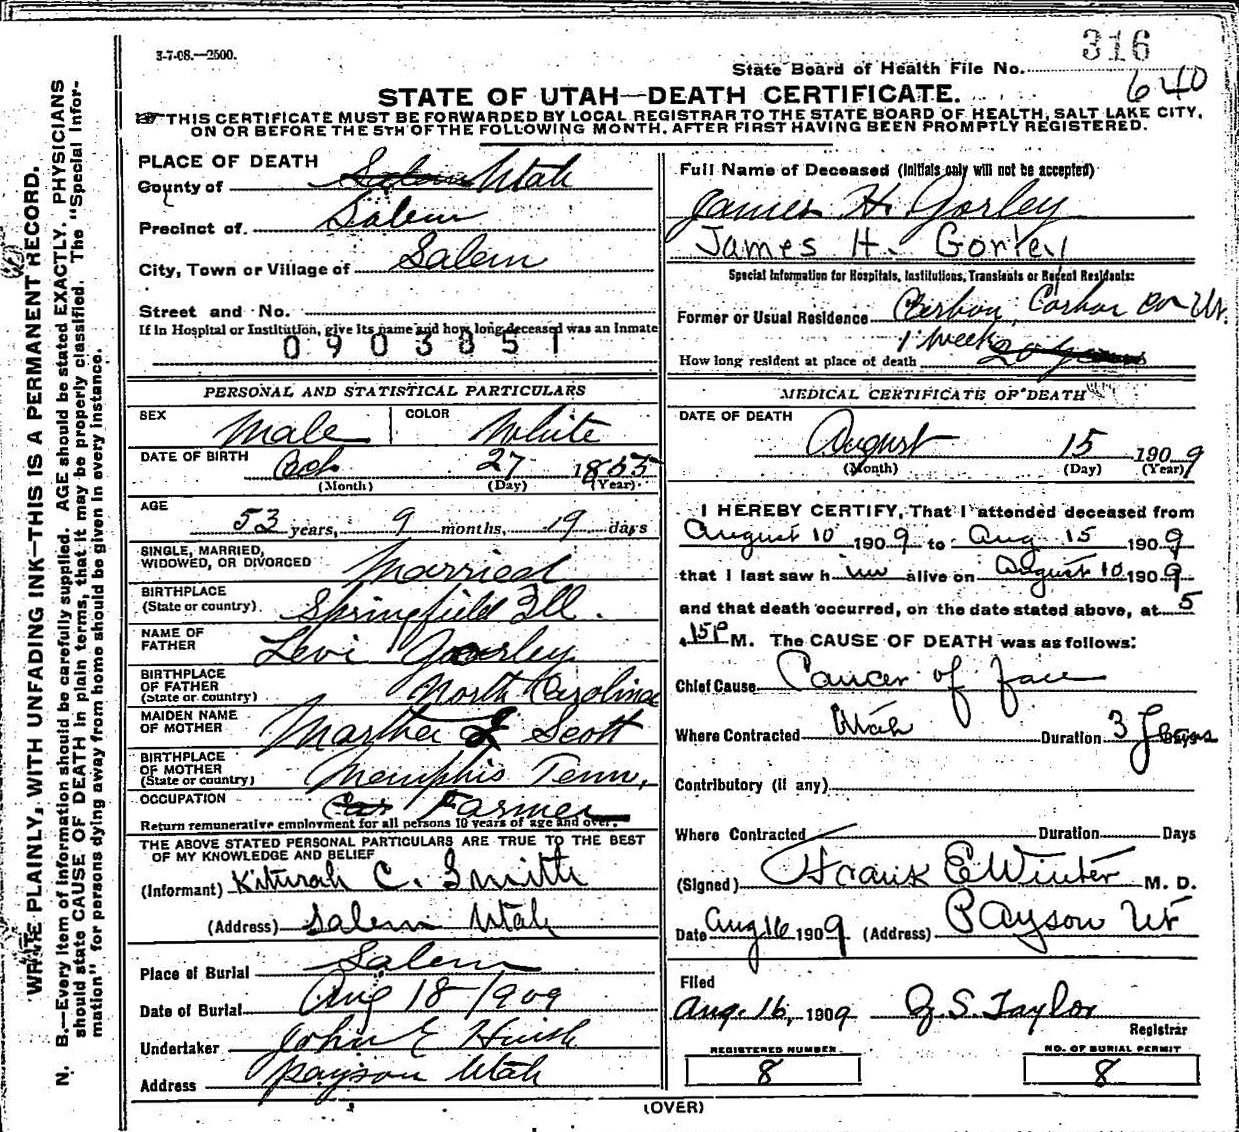 3-7-08.—2500.
316
State Board of Health File No.
640
STATE OF UTAH—DEATH CERTIFICATE.
THIS CERTIFICATE MUST BE FORWARDED BY LOCAL REGISTRAR TO THE STATE BOARD OF HEALTH, SALT LAKE CITY,
ON OR BEFORE THE 5TH OF THE FOLLOWING MONTH, AFTER FIRST HAVING BEEN PROMPTLY REGISTERED.
WRITE PLAINLY, WITH UNFADING INK—THIS IS A PERMANENT RECORD.
N. B.—Every item of information should be carefully supplied. AGE should be stated EXACTLY. PHYSICIANS
should state CAUSE OF DEATH in plain terms, that it may be properly classified. The "Special Infor-
mation" for persons dying away from home should be given in every instance.
PLACE OF DEATH
County of Salem Utah
Precinct of Salem
City, Town or Village of Salem
Street and No.
If in Hospital or Institution, give its name and how long deceased was an inmate
0903851
PERSONAL AND STATISTICAL PARTICULARS
SEX Male COLOR White
DATE OF BIRTH Oct 27 1855
(Month) (Day) (Year)
AGE
53 years, 9 months, 19 days
SINGLE, MARRIED,
WIDOWED, OR DIVORCED Married
BIRTHPLACE
(State or country) Springfield Ill.
NAME OF
FATHER Levi Gorley
BIRTHPLACE
OF FATHER
(State or country) North Carolina
MAIDEN NAME
OF MOTHER Martha Scott
BIRTHPLACE
OF MOTHER
(State or country) Memphis Tenn,
OCCUPATION Farmer
Return remunerative employment for all persons 10 years of age and over.
THE ABOVE STATED PERSONAL PARTICULARS ARE TRUE TO THE BEST
OF MY KNOWLEDGE AND BELIEF
(Informant) Kiturah C. Smith
(Address) Salem Utah
Place of Burial Salem
Date of Burial Aug 18-1909
Undertaker John E Huish
Address Payson Utah
Full Name of Deceased (Initials only will not be accepted)
James H. Gorley
James H. Gorley
Special Information for Hospitals, Institutions, Transients or Recent Residents:
Former or Usual Residence Carbon Co Ut.
How long resident at place of death 1 week 20 years
MEDICAL CERTIFICATE OF DEATH
DATE OF DEATH
August 15 1909
(Month) (Day) (Year)
I HEREBY CERTIFY, That I attended deceased from
August 10 1909 to Aug 15 1909
that I last saw him alive on August 10 1909
and that death occurred, on the date stated above, at 5
15P M. The CAUSE OF DEATH was as follows:
Chief Cause Cancer of face
Where Contracted Utah Duration 3 Years Days
Contributory (if any)
Where Contracted Duration Days
(Signed) Frank E Winter M. D.
Date Aug 16 1909 (Address) Payson Ut
Filed
Aug. 16, 1909 J. S. Taylor
Registrar
REGISTERED NUMBER NO. OF BURIAL PERMIT
8 8
(OVER)